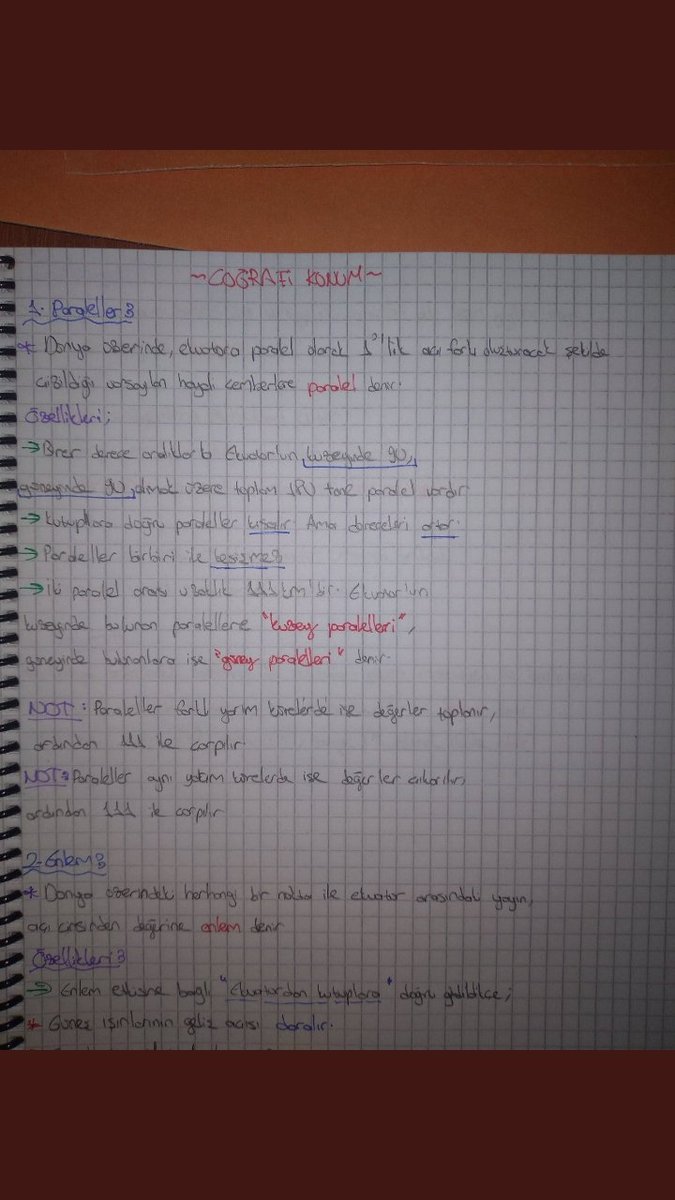 ~COĞRAFİ KONUM~
1- Paraleller;
* Dünya üzerinde, ekvatora paralel olarak 1°'lik açı farkı oluşturacak şekilde
çizildiği varsayılan hayali çemberlere paralel denir.
Özellikleri;
→ Birer derece aralıklarla Ekvator'un kuzeyinde 90,
güneyinde 90, olmak üzere toplam 180 tane paralel vardır
→ Kutuplara doğru paraleller kısalır. Ama dereceleri artar.
→ Paraleller birbiri ile kesişmez
→ İki paralel arası uzaklık 111 km'dir. Ekvator'un
kuzeyinde bulunan paralellere "kuzey paralelleri",
güneyinde bulunanlara ise "güney paralelleri" denir.
NOT: Paraleller farklı yarım kürelerde ise değerler toplanır,
ardından 111 ile çarpılır.
NOT: Paraleller aynı yarım kürelerde ise değerler çıkarılır,
ardından 111 ile çarpılır
2- Enlem;
* Dünya üzerindeki herhangi bir nokta ile ekvator arasındaki yayın,
açı cinsinden değerine enlem denir
Özellikleri;
→ Enlem etkisine bağlı "Ekvatordan kutuplara" doğru gidildikçe;
* Güneş ışınlarının geliş açısı daralır.